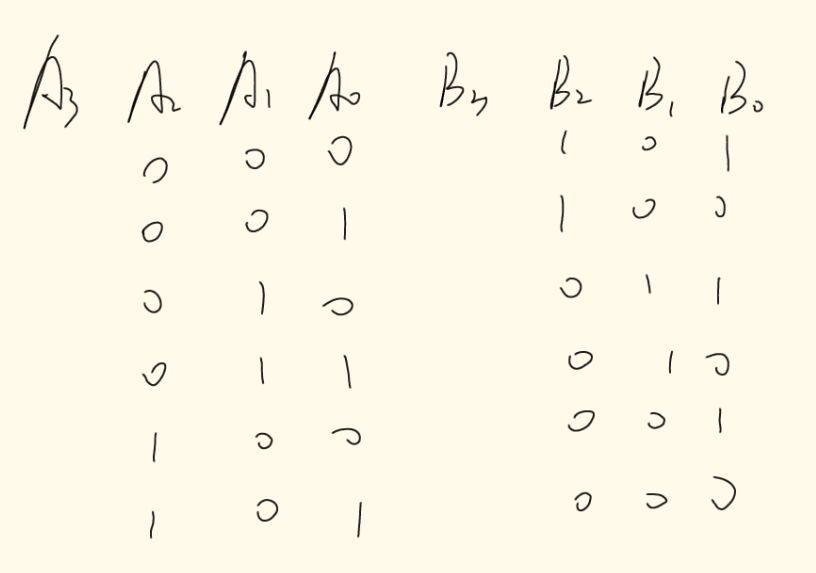 A₃ A₂ A₁ A₀ B₃ B₂ B₁ B₀
0 0 0 1 0 1
0 0 1 1 0 0
0 1 0 0 1 1
0 1 1 0 1 0
1 0 0 0 0 1
1 0 1 0 0 0